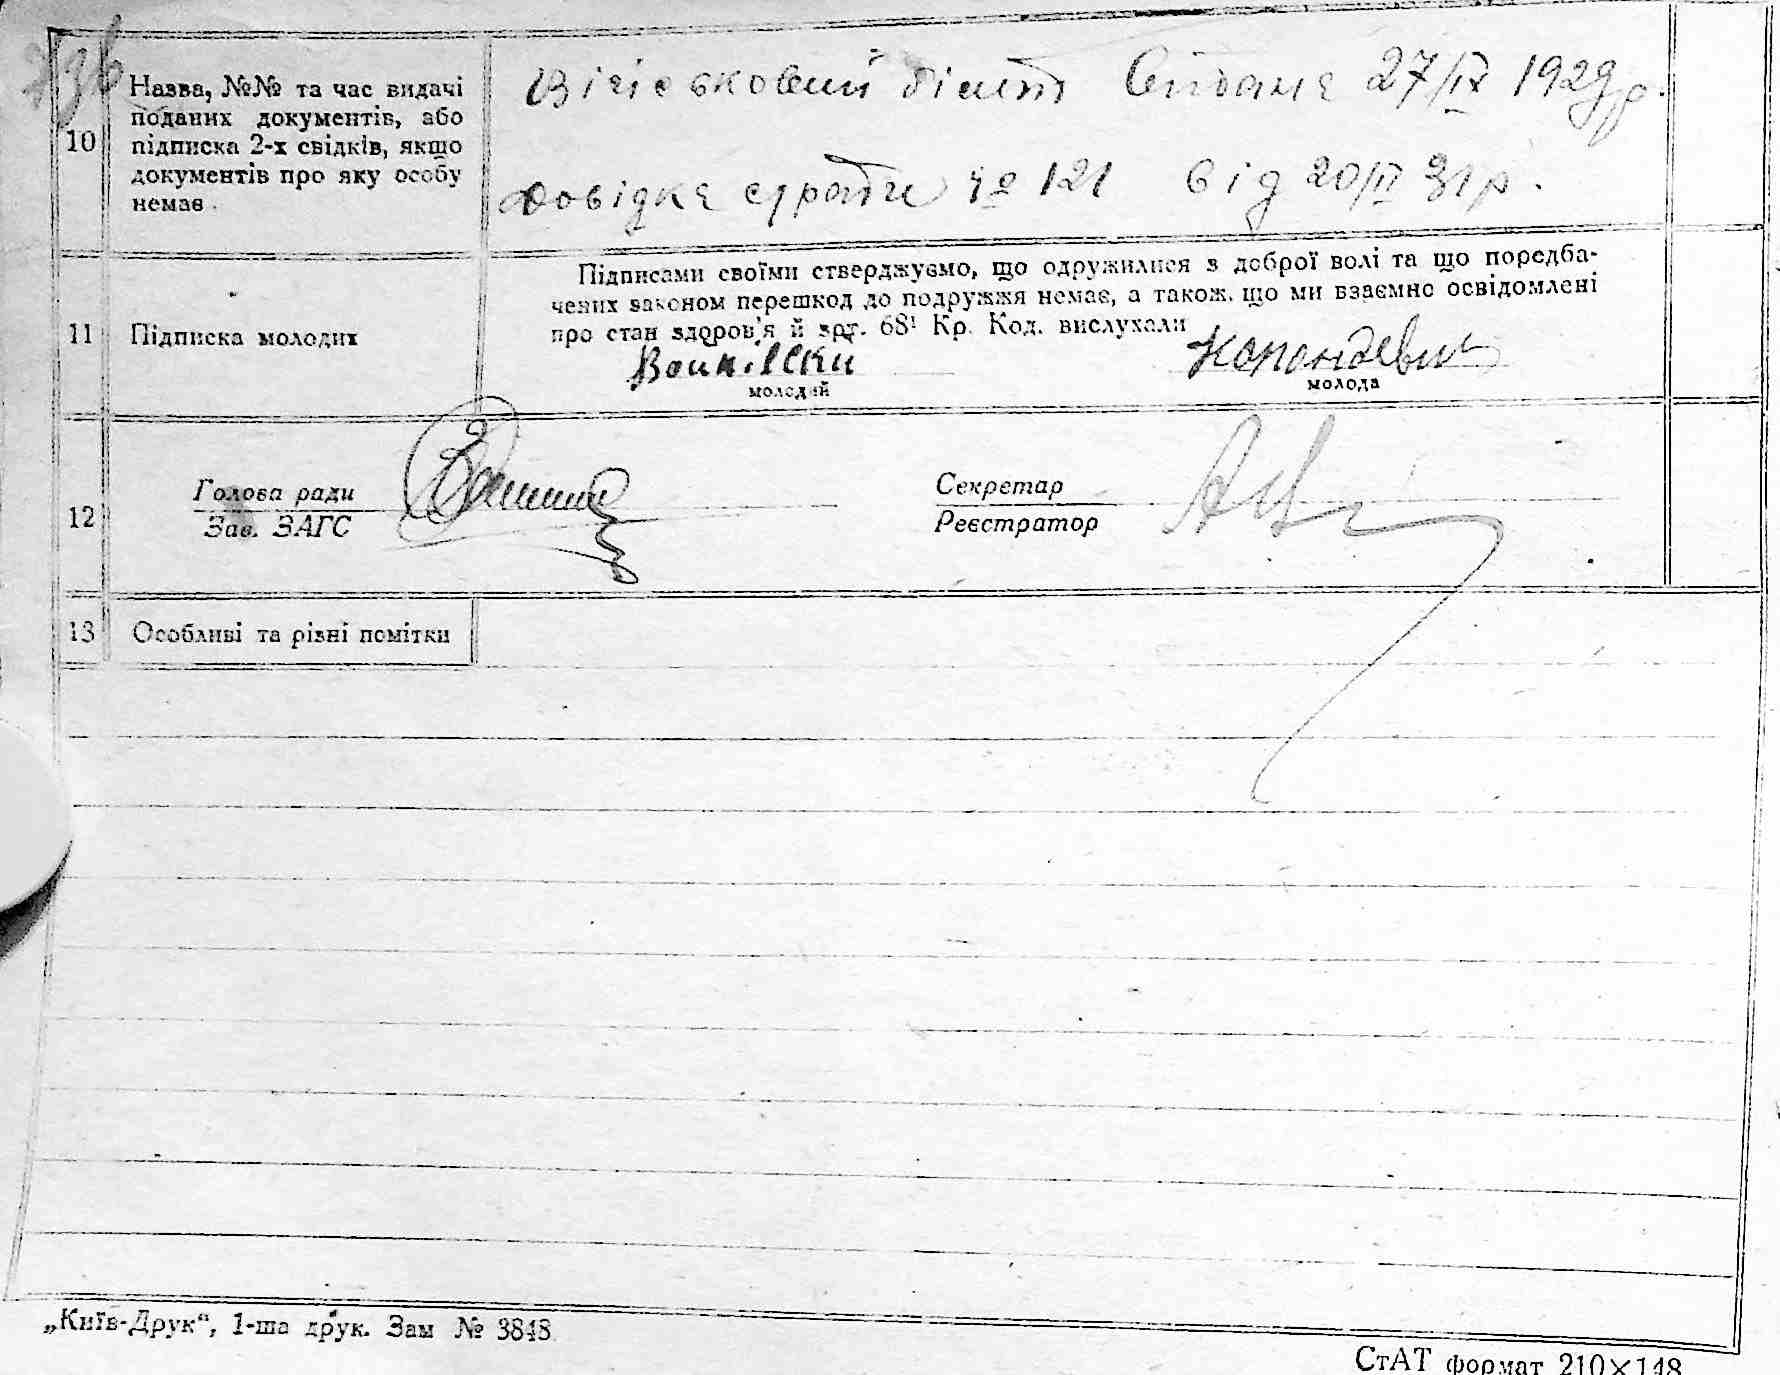 36
Назва, №№ та час видачі
поданих документів, або
підписка 2-х свідків, якщо
документів про яку особу
немає.
10
Військовий білет видано 27/IX 1929 р.
Довідка сірати № 121 від 20/II 31 р.
Підписами своїми стверджуємо, що одружилися з доброї волі та що поредба-
чених законом перешкод до подружжя немає, а також, що ми взаємно освідомлені
про стан здоров'я й арт. 68¹ Кр. Код. вислухали
11
Підписка молодих
молодий
молода
12
Голова ради
Зав. ЗАГС
Секретар
Реєстратор
13
Особливі та різні помітки
„Київ-Друк“, 1-ша друк. Зам № 3848
СтАТ формат 210×148